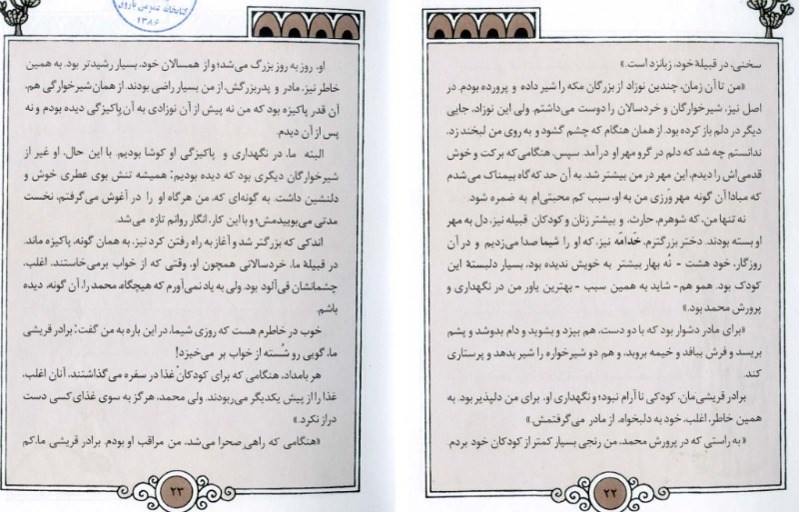 سخنی، در قبیلهٔ خود، زبانزد است.»
«من تا آن زمان، چندین نوزاد از بزرگان مکه را شیر داده و پرورده بودم. در
اصل نیز، شیرخوارگان و خردسالان را دوست می‌داشتم. ولی این نوزاد، جایی
دیگر در دلم باز کرده بود. از همان هنگام که چشم گشود و به روی من لبخند زد،
ندانستم چه شد که دلم در گرو مهر او درآمد. سپس، هنگامی که برکت و خوش
قدمی‌اش را دیدم، این مهر در من بیشتر شد. به آن حد که گاه بیمناک می‌شدم
که مبادا آن گونه مهرورزی من به او، سبب کم محبتی‌ام به ضمره شود.
نه تنها من، که شوهرم، حارث، و بیشتر زنان و کودکان قبیله نیز، دل به مهر
او بسته بودند. دختر بزرگترم، خدامَه نیز، که او را شیما صدا می‌زدیم و در آن
روزگار، خود هشت - نُه بهار بیشتر به خویش ندیده بود، بسیار دلبستهٔ این
کودک بود. همو هم - شاید به همین سبب - بهترین یاور من در نگهداری و
پرورش محمد بود.»
«برای مادر دشوار بود که با دو دست، هم بپزد و بشوید و دام بدوشد و پشم
بریسد و فرش ببافد و خیمه بروبد، و هم دو شیرخواره را شیر بدهد و پرستاری
کند.
برادر قریشی‌مان، کودکی نا آرام نبود؛ و نگهداری او، برای من دلپذیر بود. به
همین خاطر، اغلب، خود به دلبخواه، از مادر می‌گرفتمش.»
«به راستی که در پرورش محمد، من رنجی بسیار کمتر از کودکان خود بردم.
۲۲
کتابخانه عمومی
۱۳۸۶
او، روز به روز بزرگ می‌شد؛ و از همسالان خود، بسیار رشیدتر بود. به همین
خاطر نیز، مادر و پدربزرگش، از من بسیار راضی بودند. از همان شیرخوارگی هم،
آن قدر پاکیزه بود که من نه پیش از آن نوزادی به آن پاکیزگی دیده بودم و نه
پس از آن دیدم.
البته ما، در نگهداری و پاکیزگی او کوشا بودیم. با این حال، او غیر از
شیرخوارگان دیگری بود که دیده بودیم: همیشه تنش بوی عطری خوش و
دلنشین داشت. به گونه‌ای که، من هرگاه او را در آغوش می‌گرفتم، نخست
مدتی می‌بوییدمش؛ و با این کار، انگار روانم تازه می‌شد.
اندکی که بزرگتر شد و آغاز به راه رفتن کرد نیز، به همان گونه، پاکیزه ماند.
در قبیلهٔ ما، خردسالانی همچون او، وقتی که از خواب برمی‌خاستند، اغلب،
چشمانشان قی‌آلود بود. ولی به یاد نمی‌آورم که هیچگاه، محمد را، آن گونه، دیده
باشم.
خوب در خاطرم هست که روزی شیما، در این باره به من گفت: برادر قریشی
ما، گویی رو شُسته از خواب بر می‌خیزد!
هر بامداد، هنگامی که برای کودکانْ غذا در سفره می‌گذاشتند، آنان اغلب،
غذا را از پیش یکدیگر می‌ربودند. ولی محمد، هرگز به سوی غذای کسی دست
دراز نکرد.»
«هنگامی که راهیِ صحرا می‌شد، من مراقب او بودم. برادر قریشی ما، کم
۲۳